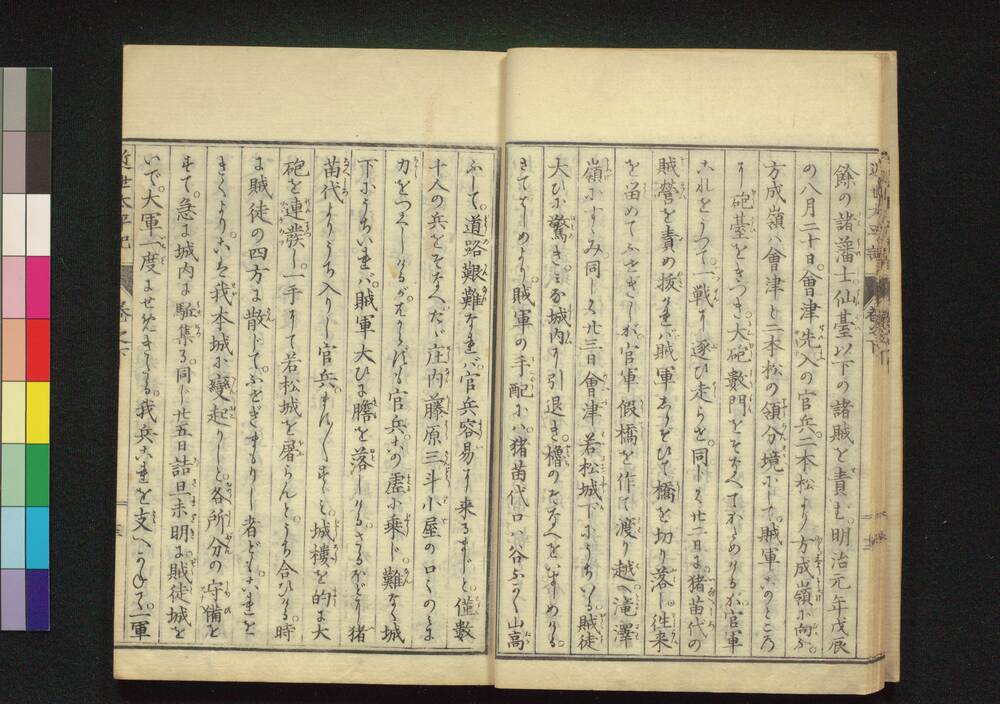 餘の諸藩士仙臺以下の諸賊を責む。明治元年戊辰
の八月二十日會津先入の官兵二本松より方成嶺に向ふ。
方成嶺ハ會津と二本松の領分境にして賊軍このところ
に砲臺をきづき大砲數門をそなへてかためけるが官軍
これをうつて一戰に逐ひ走らせ同じく廿二日に猪苗代の
賊營を責め抜けれバ賊軍しりぞひて橋を切り落し往来
を留めてふせぎしが官軍假橋を作て渡り越へ滝澤
嶺にすゝみ同じく廿三日會津若松城下にうちいる賊徒
大ひに驚き みな城内に引退き櫓のそなへをいましめける
きてはじめより賊軍の手配にハ猪苗代口ハ谷ふかく山高
ふして道路艱難なれバ官兵容易に来るまじと僅數
十人の兵をそなへたゞ庄内藤原三斗小屋の口々のミに
力をつくしけるが はからずも官兵この虚に乗じ難なく城
下にうちいれバ賊軍大ひに膽を落しける さるほどに猪
苗代よりうち入りし官兵すんすんすゝミ城樓を的に大
砲を連發し一手にて若松城を屠らんとうち合ひける時
に賊徒の四方に散じてふせぎまもりし者どもこれを
きくよりこハ我本城に變起りしと各所分の守備を
すて急に城内に駈集る同じ廿五日詰旦未明に賊徒城を
いで大軍一度にせめきたる我兵これを支へかねて一軍
近世太平記